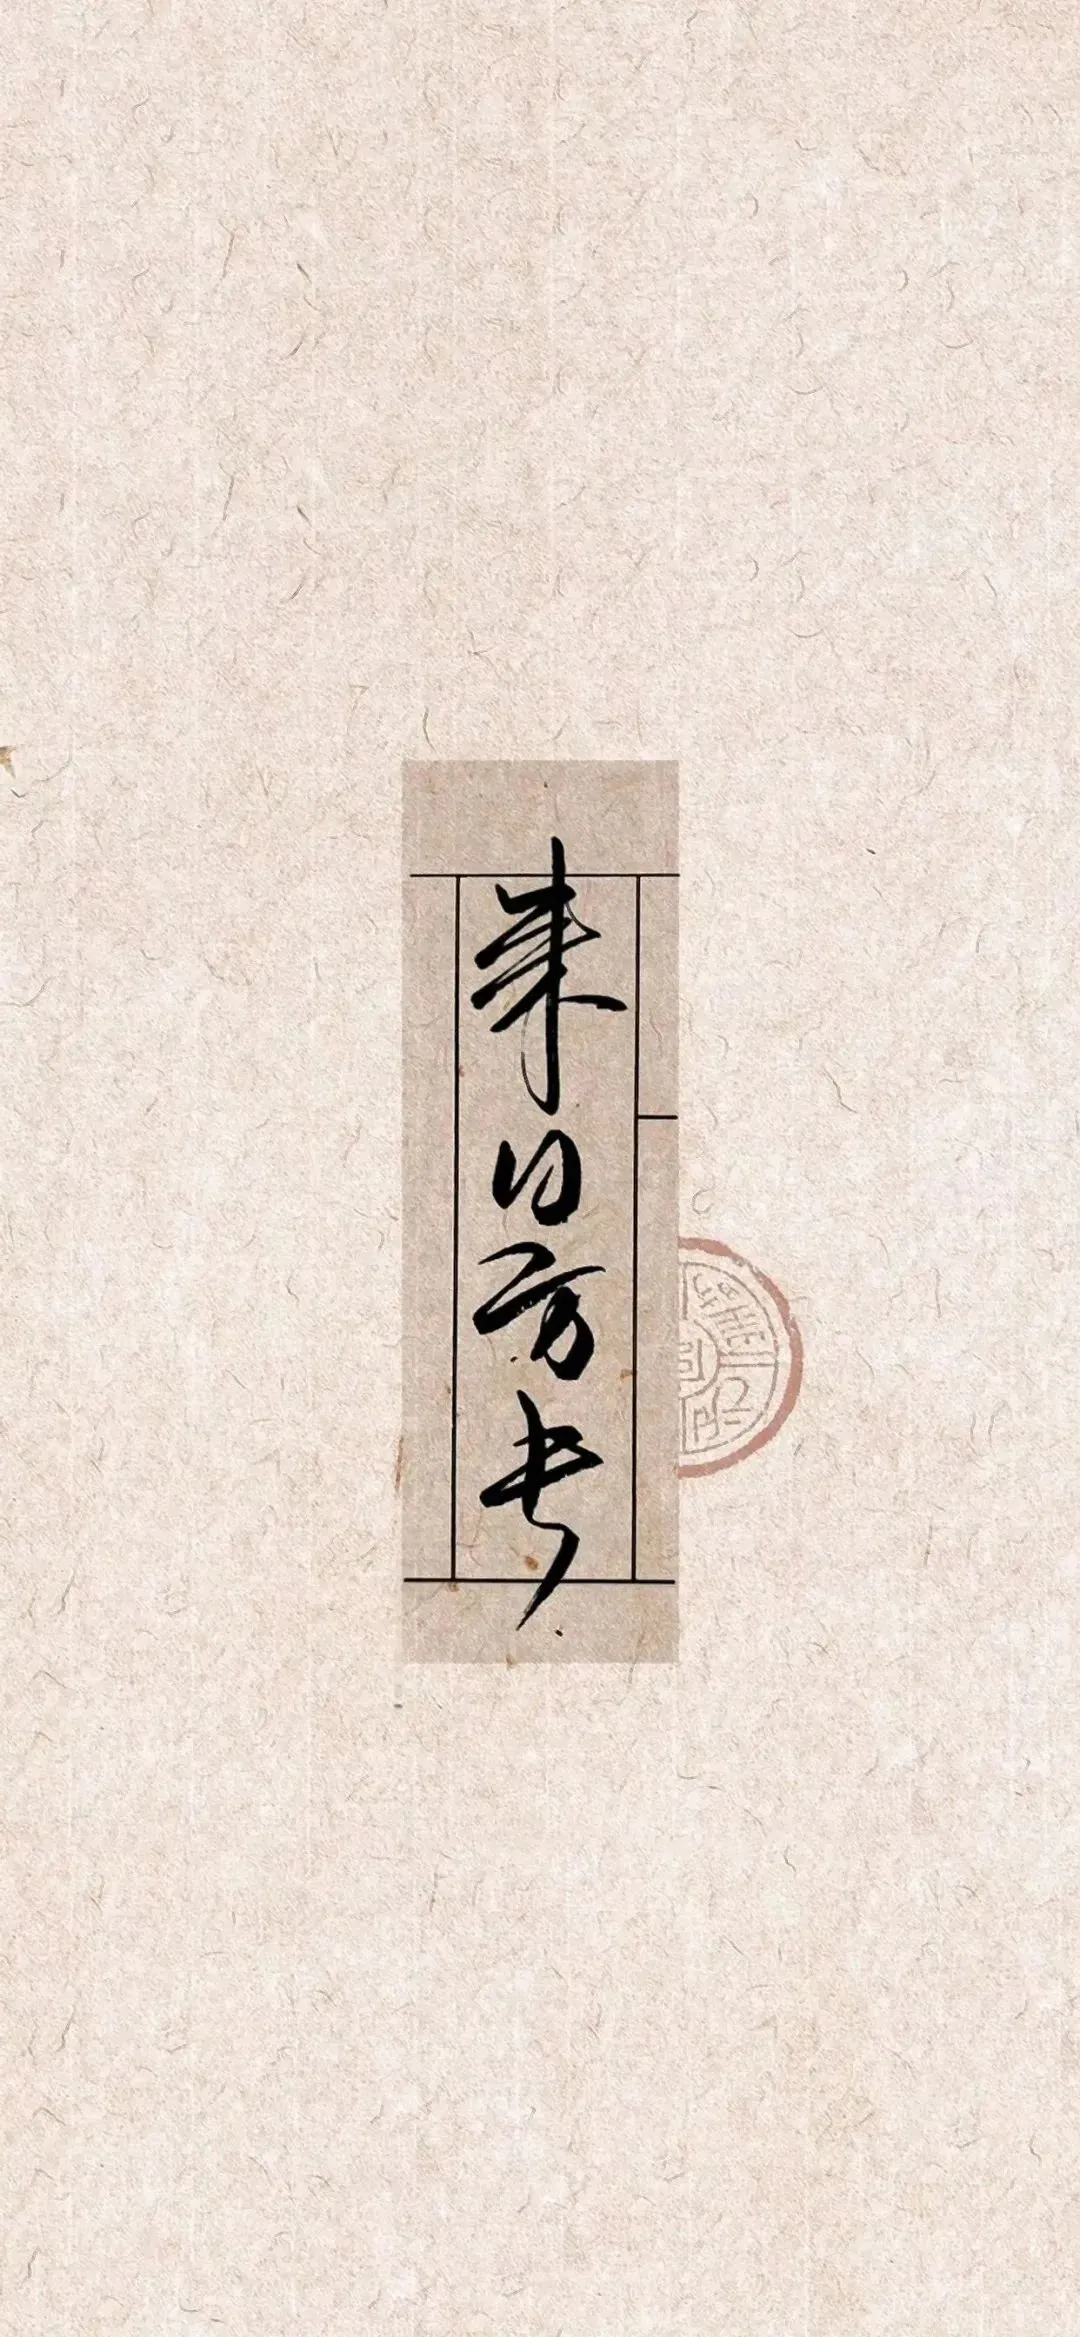 来日方长